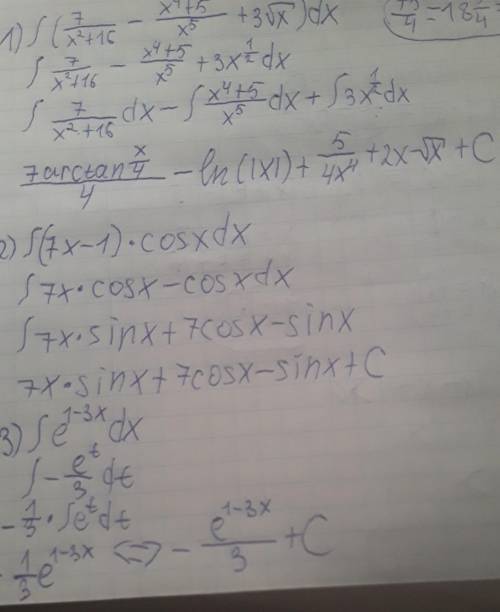 1) ∫(7/(x²+16) - (x⁴+5)/x⁵ + 3√x)dx
∫ 7/(x²+16) - (x⁴+5)/x⁵ + 3x^(1/2) dx
∫ 7/(x²+16) dx - ∫ (x⁴+5)/x⁵ dx + ∫3x^(1/2) dx
(7arctan x/4)/4 - ln(|x|) + 5/(4x⁴) + 2x-√x + C
2) ∫(7x-1)·cosxdx
∫7x·cosx-cosxdx
∫7x·sinx+7cosx-sinx
7x·sinx+7cosx-sinx+C
3) ∫e^(1-3x)dx
∫-e^t/3 dt
-1/3·∫e^t dt
-1/3 e^(1-3x) <=> - e^(1-3x)/3 + C